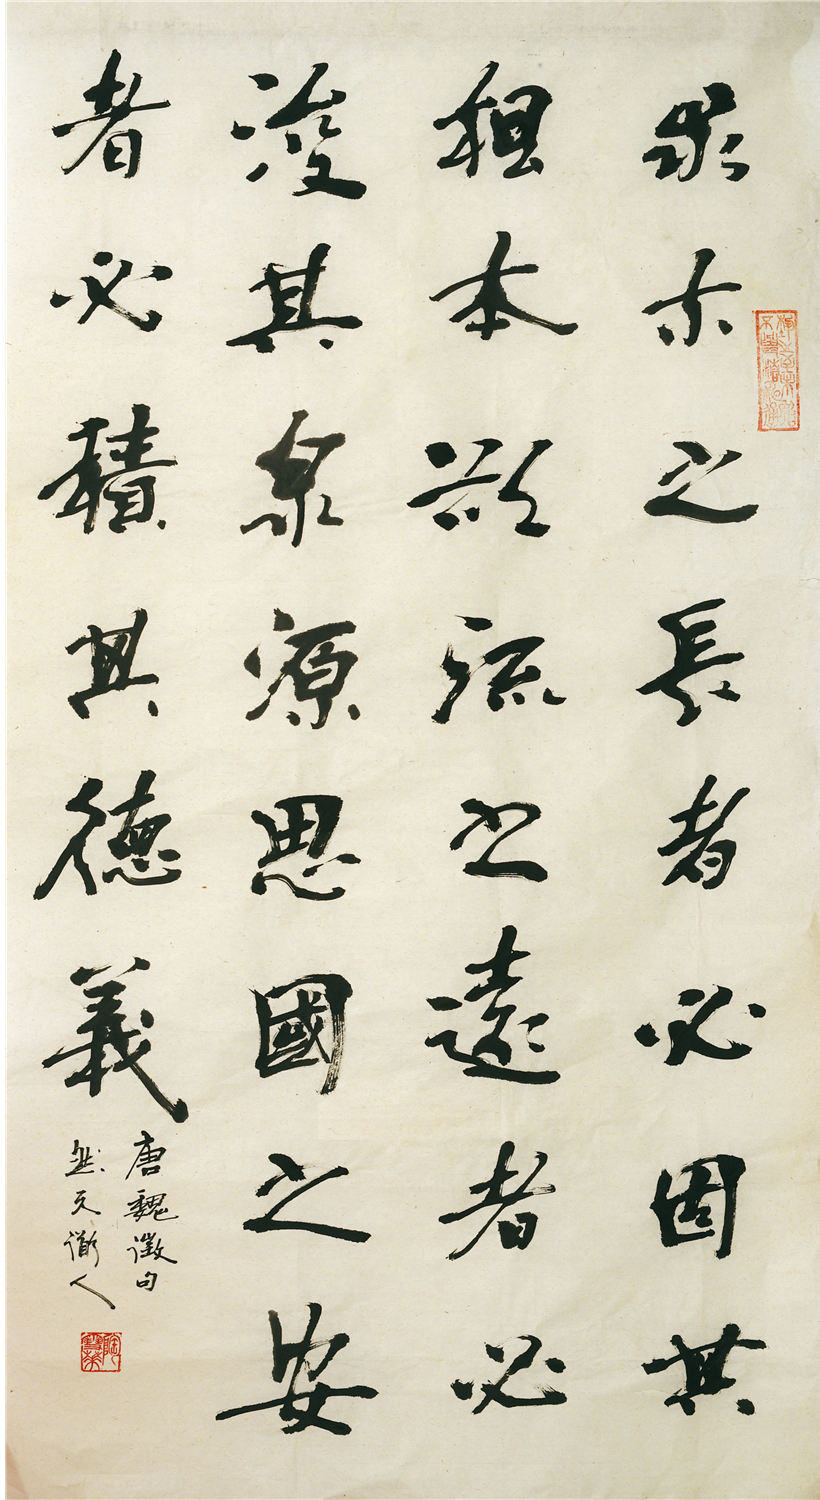 求木之長者必固其
根本欲流之遠者必
浚其泉源思國之安
者必積其德義
唐魏徵句